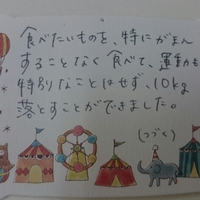 食べたいものを、特にがまん
することなく食べて、運動も
特別なことはせず、10kg
落とすことができました。
(つづく)